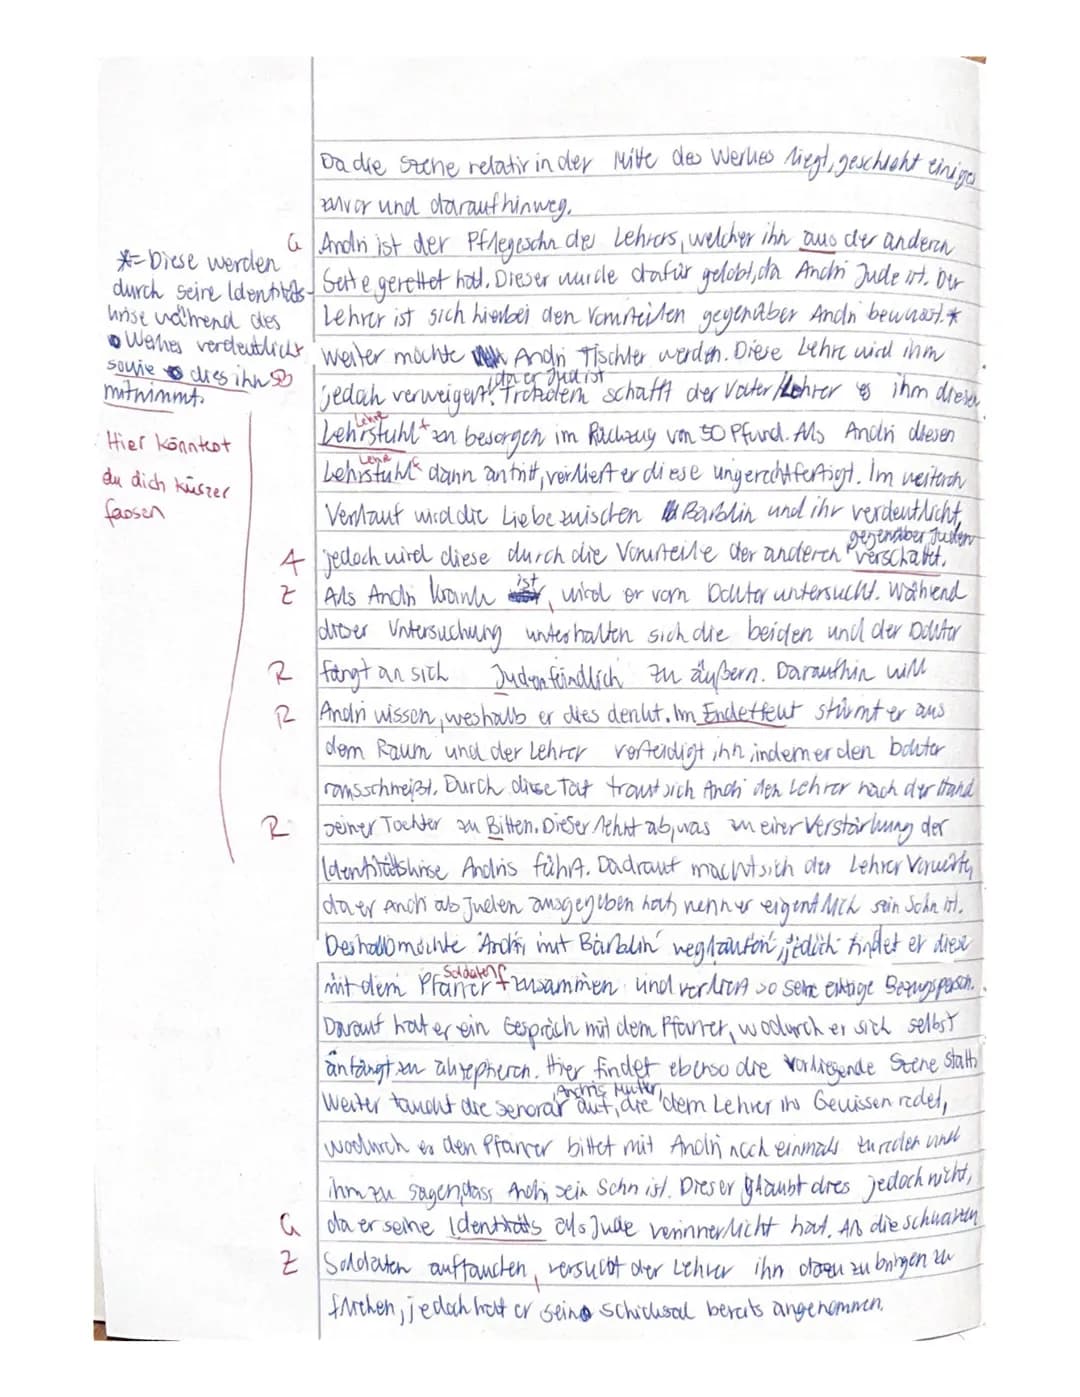 Da die Szene relativ in der Mitte des Werkes liegt, geschieht einiges
zuvor und daraufhinweg.
G
Andri ist der Pflegesohn des Lehrers, welcher ihn aus der anderen
Seite gerettet hat. Dieser wurde dafür gelobt, da Andri Jude ist. Der
Lehrer ist sich hierbei den Vorurteilen gegenüber Andri bewusst. *
*= Diese werden
durch seine Identitäts-
krise während des
Werkes verdeutlicht
sowie dies ihn SB
mitnimmt.
Weiter möchte Andri Tischler werden. Diese Lehre wird ihm
da er Jud ist
jedoch verweigert. Trotzdem schafft der Vater/Lehrer es ihm diesen
Lehre
Lehrstuhl + zu besorgen im Rückzug von 50 Pfund. Als Andri diesen
Lehre
Lehrstuhl dann antritt, verliert er diese ungerechtfertigt. Im weiteren
Hier könntest
du dich kürzer
fassen
Verlauf wird die Liebe zwischen Barblin und ihr verdeutlicht,
gegenüber Juden
A
jedoch wird diese durch die Vorurteile der anderen verschalkt.
Z
Als Andri krank ist, wird er vom Doktor untersucht. Während
dieser Untersuchung unterhalten sich die beiden und der Doktor
R
fängt an sich Judenfeindlich zu äußern. Daraufhin will
R
Andri wissen, weshalb er dies denkt. Im Endeffekt stürmt er aus
dem Raum und der Lehrer verteidigt ihn, indem er den Doktor
rausschmeißt. Durch diese Tat traut sich Andri den Lehrer nach der Hand
R
seiner Tochter zu Bitten. Dieser lehnt ab, was zu einer Verstärkung der
Identitätskrise Andris führt. Dadrauf macht sich der Lehrer Vorwürfe,
da er Andri als Juden ausgegeben hat, wenn er eigentlich sein Sohn ist.
Deshalb möchte Andri mit Barblin weglaufen, jedoch findet er diese
Soldaten
mit dem Pfarrer zusammen und verliert so seine einzige Bezugsperson.
Darauf hat er ein Gespräch mit dem Pfarrer, wodurch er sich selbst
anfängt zu akzeptieren. Hier findet ebenso die vorliegende Szene statt.
Andris Mutter,
Weiter taucht die Senora auf, die dem Lehrer ins Gewissen redet,
wodurch er den Pfarrer bittet mit Andri noch einmals zu reden und
ihm zu sagen, dass Andri sein Sohn ist. Dieser glaubt dies jedoch nicht,
G
da er seine Identitäts als Jude verinnerlicht hat. Als die schwarzen
Z
Soldaten auftauchen, versucht der Lehrer ihn dazu zu bringen zu
fliehen, jedoch hat er sein Schicksal bereits angenommen.